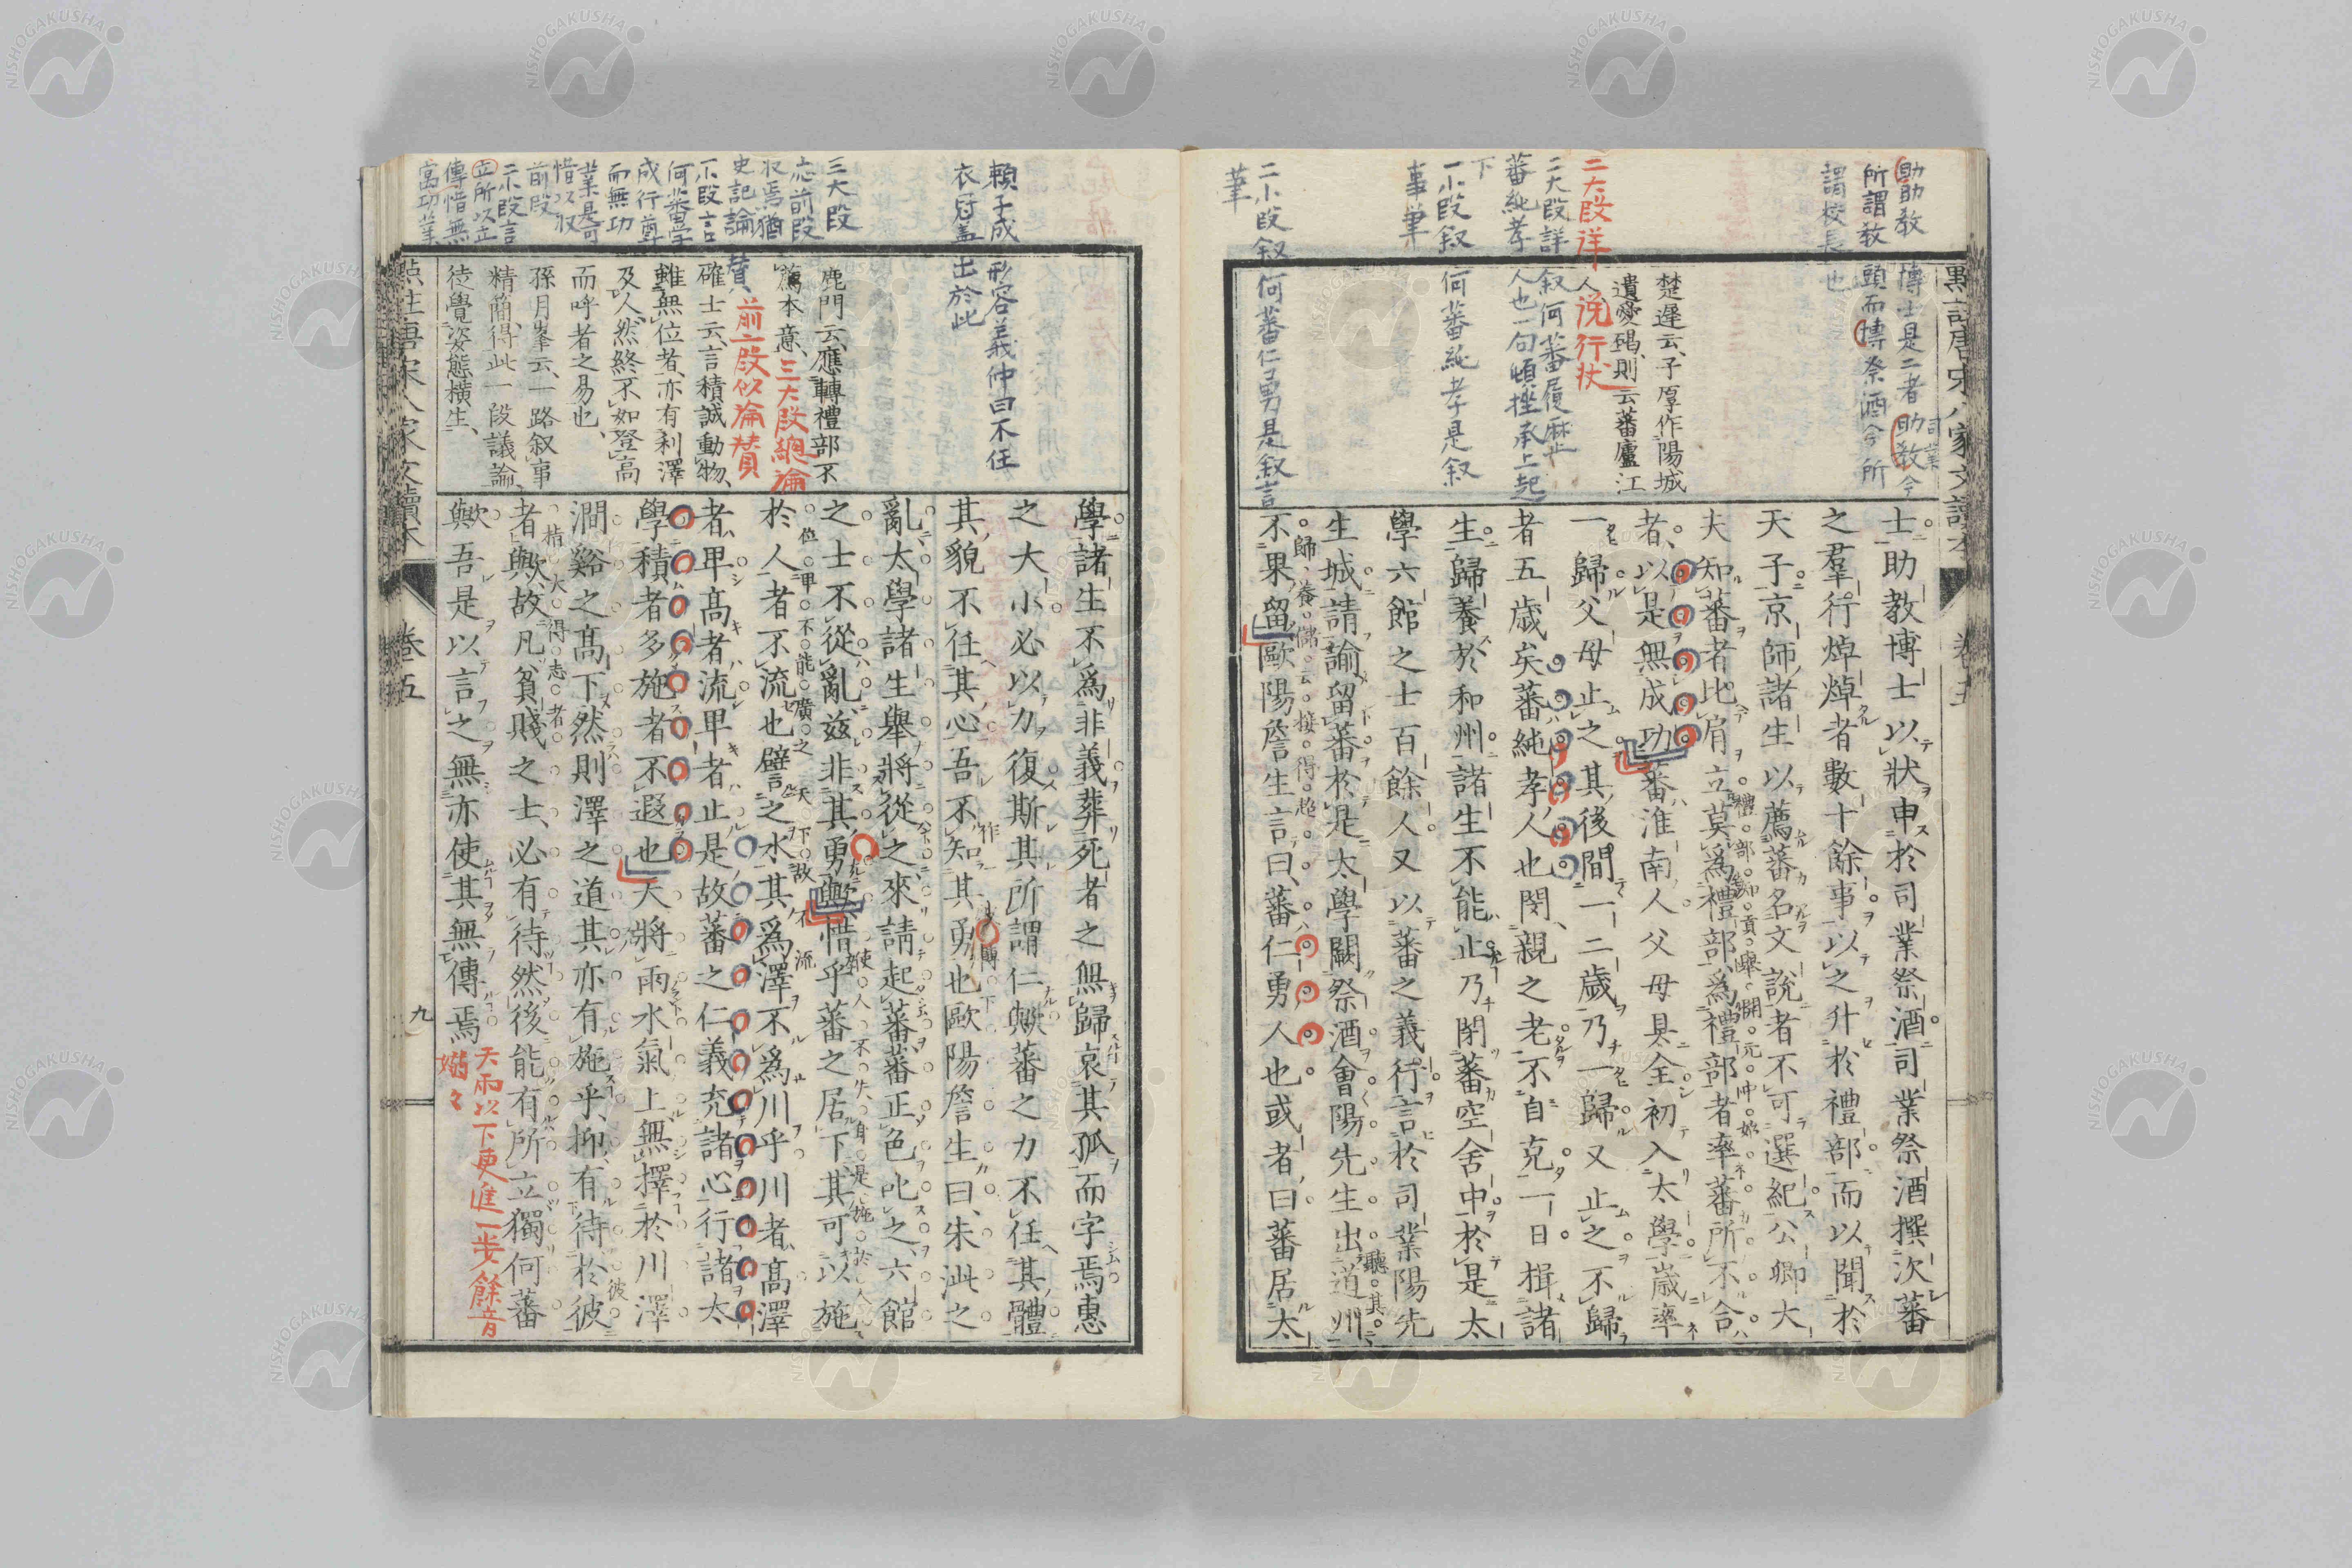 助助教 博士是二者助教今
所謂教頭而博祭酒今所
謂校長也
司業
楚遲云、子厚作陽城
遺愛碣、則云蕃廬江
人、
二大段詳説行状
二大段詳叙何蕃履歴
蕃純孝人也一句頓挫承上起
下
一小段叙何蕃純孝是叙
事筆
二小段叙何蕃仁勇是叙言
筆
士助教博士以狀申於司業祭酒司業祭酒撰次蕃
之羣行焯焯者數十餘事以之升於禮部而以聞於
天子京師諸生以薦蕃名文說者不可選紀公卿大
夫知蕃者比肩立莫爲禮部爲禮部者率蕃所不合
者、以是無成功蕃淮南人父母具全初入太學歲率
一歸父母止之其後間一二歲乃一歸又止之不歸
者五歲矣蕃純孝人也閔親之老不自克一日揖諸
生歸養於和州諸生不能止乃閉蕃空舍中於是太
學六館之士百餘人又以蕃之義行言於司業陽先
生城請諭留蕃於是太學闕祭酒會陽先生出道州
不果留歐陽詹生言曰、蕃仁勇人也或者曰蕃居太
卷五
賴子成 形容義仲曰不任
衣冠蓋出於此
三大段
応前段
収焉猶
史記論
賛、
一小段言
何蕃学
成行尊
而無功
業是可
惜以収
前段
二小段言
立所以立
傳惜無
富功業
鹿門云、應轉禮部不
薦本意、
三大段總論
確士云、言積誠動物、
前二段似論賛
雖無位者、亦有利澤
及人、然終不如登高
而呼者之易也、
孫月峯云、一路叙事
精簡、得此一段議論、
徒覺姿態橫生、
學諸生不爲非義葬死者之無歸哀其孤而字焉惠
之大小必以力復斯其所謂仁歟蕃之力不任其體
其貌不任其心吾不知其勇也歐陽詹生曰、朱泚之
亂太學諸生舉將從之、來請起蕃、蕃正色叱之、六館
之士不從亂、茲非其勇歟惜乎蕃之居下其可以施
於人者不流也譬之水其爲澤不爲川乎川者、高澤
者、卑高者流卑者止是故蕃之仁義充諸心行諸太
學積者多施者不遐也天將雨水氣上無擇於川澤
澗谿之高下然則澤之道其亦有施乎、抑有待於彼
者歟故凡貧賤之士、必有待然後能有所立獨何蕃
歟吾是以言之無亦使其無傳焉
天雨以下更進一步餘音
嫋々
點註唐宋八家文讀本
卷五
九